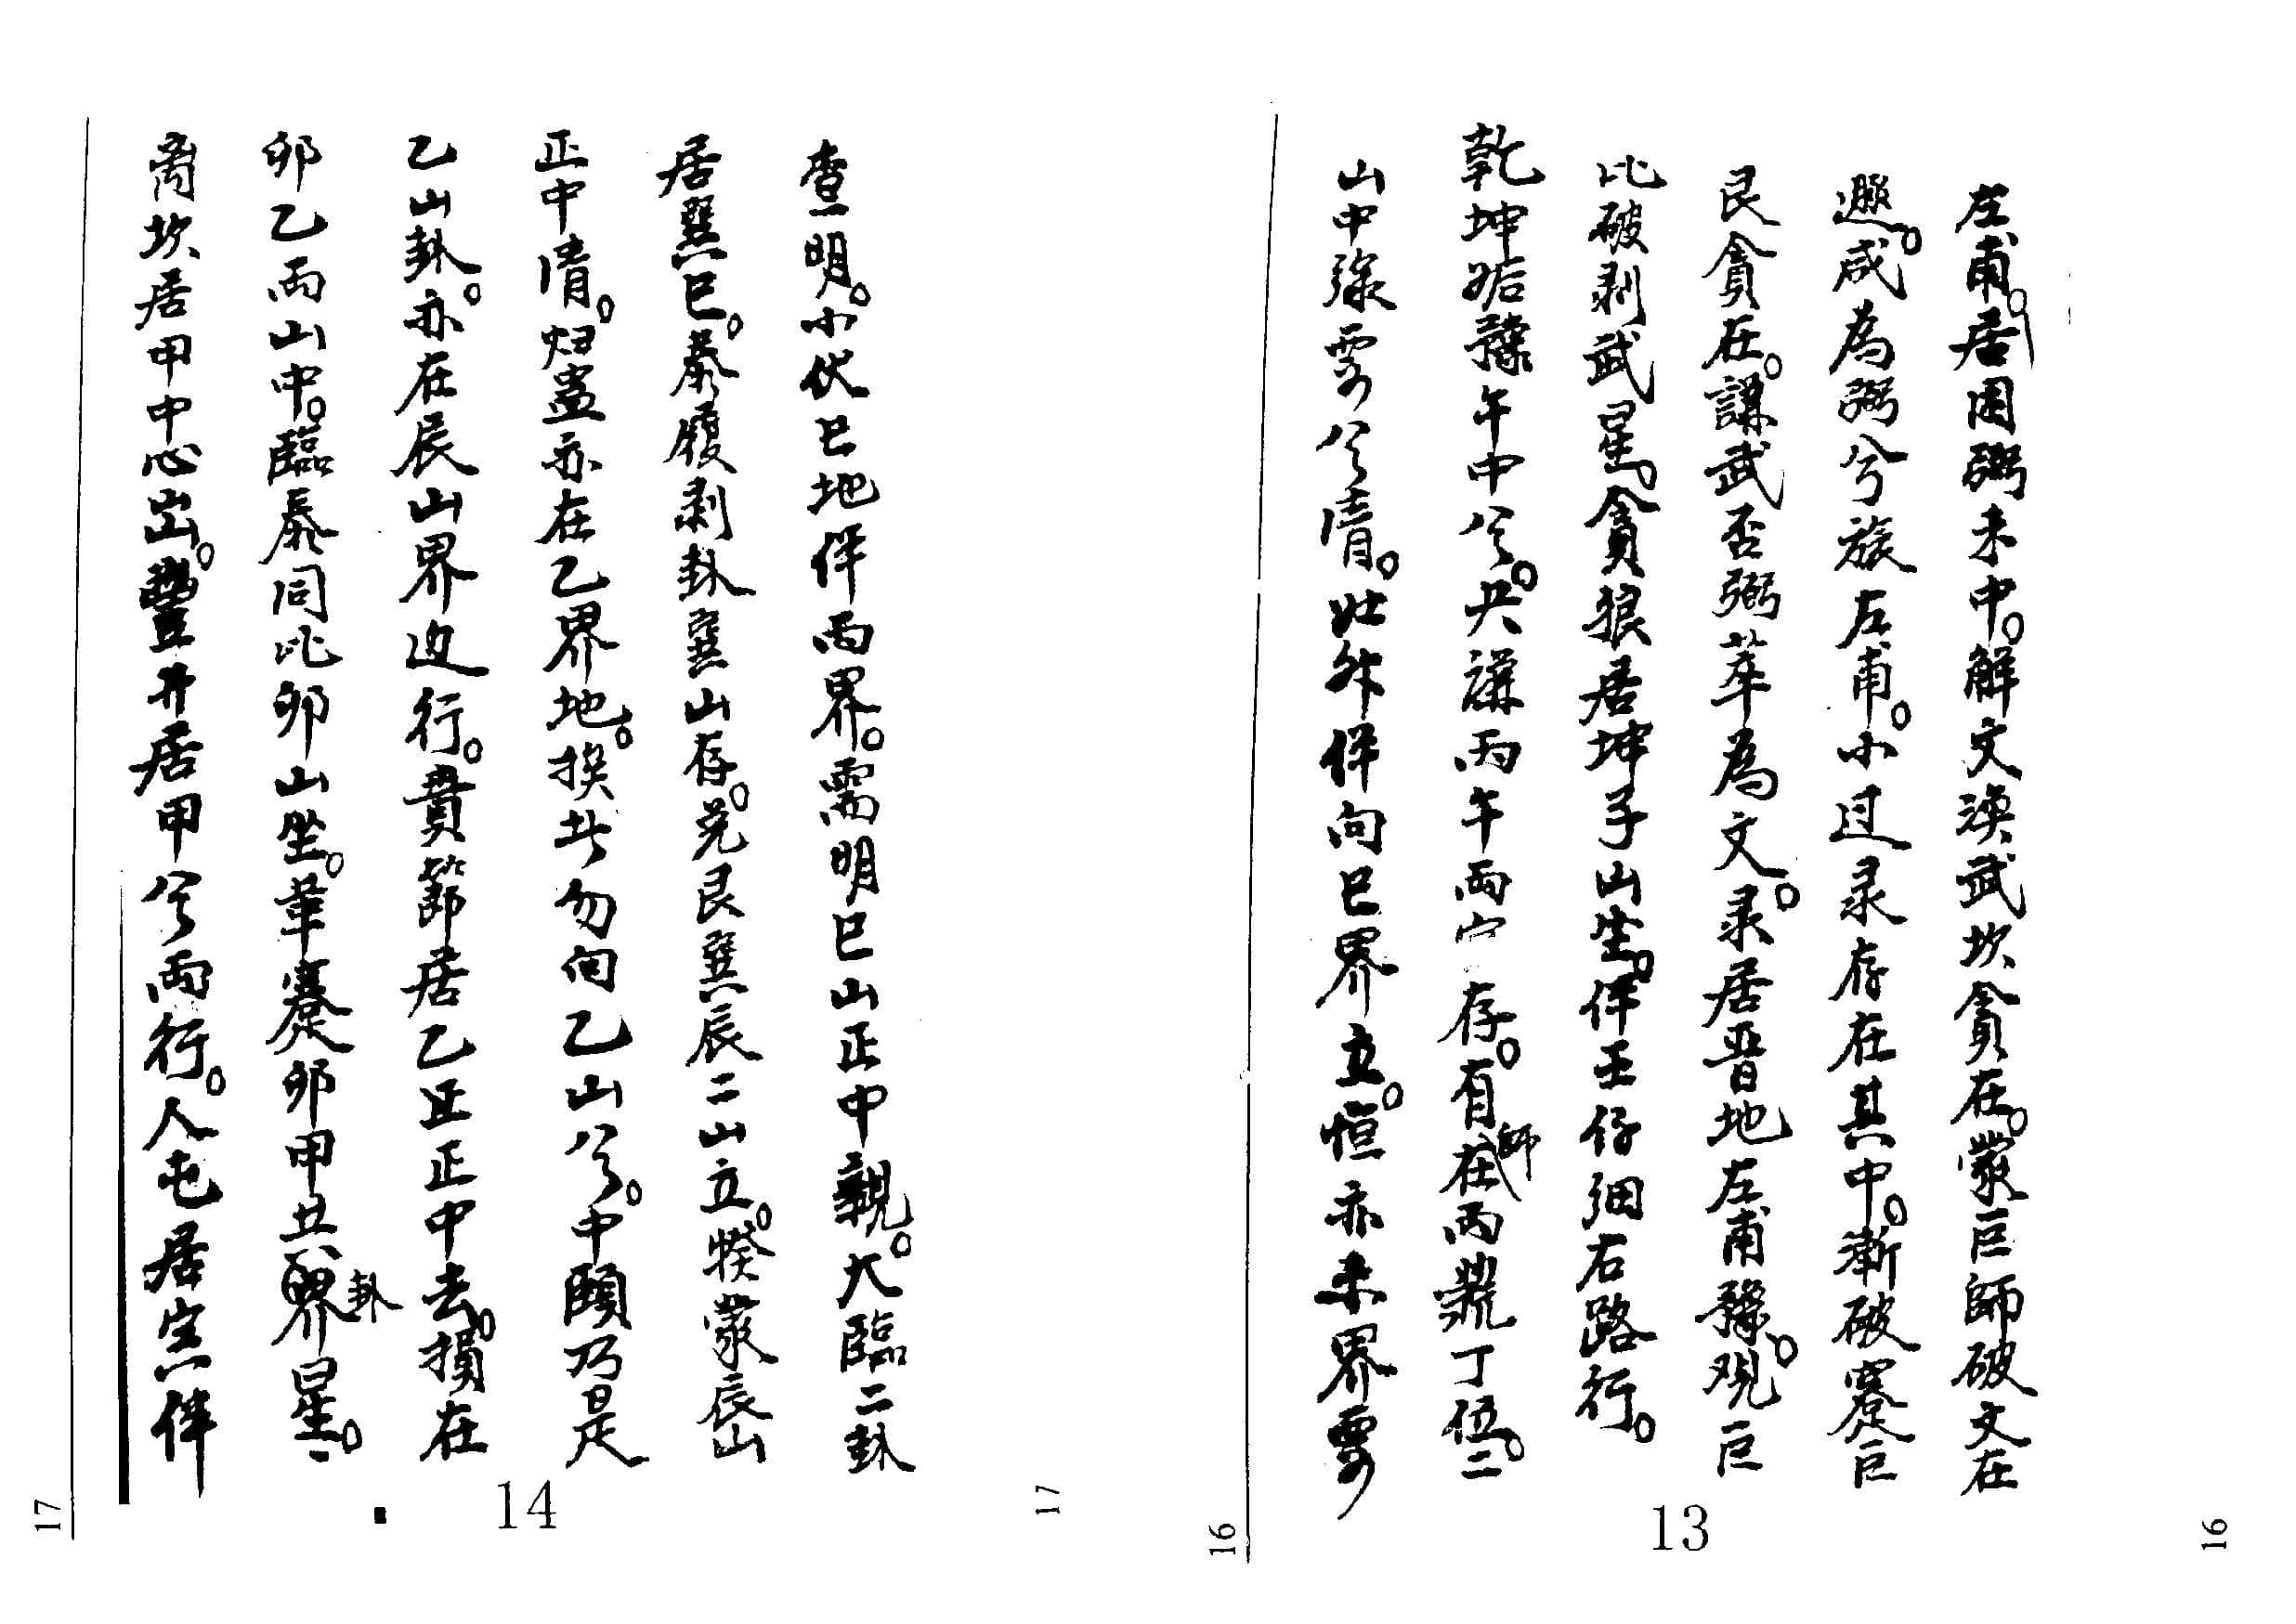 左甫。居困弼未中。解文渙武坎貪在。蒙巨師破文在
遯。咸為弼兮旅左甫。小过录存在其中。漸破蹇巨
艮貪在。謙武否弼萃為文。录居晋地左甫豫。观巨
比破剥武星。貪狼居坤子山坐。伴壬仔细右路行。
乾坤姤豫午中兮。共謙丙午两 存。有師在丙鼎丁伍。二
山中缘要兮清。壮外伴向巳界立。恒亦未界要
13
16
16
查明。小伏巳地伴两界。需明巳山正中親。大臨二卦
居巽巳。泰履剥卦巽山存。兑艮巽辰二山立。睽蒙辰山
正中清。归蛊亦在乙界地。換失勿向乙山兮。中頤乃是
乙山卦。亦在辰山界边行。賁節居乙正正中去。損在
卯乙两山中。臨泰同比卯山坐。革蹇卯甲共界卦星。二
离坎居甲中心出。豐井居甲兮两行。人屯居寅伴
14
17
17